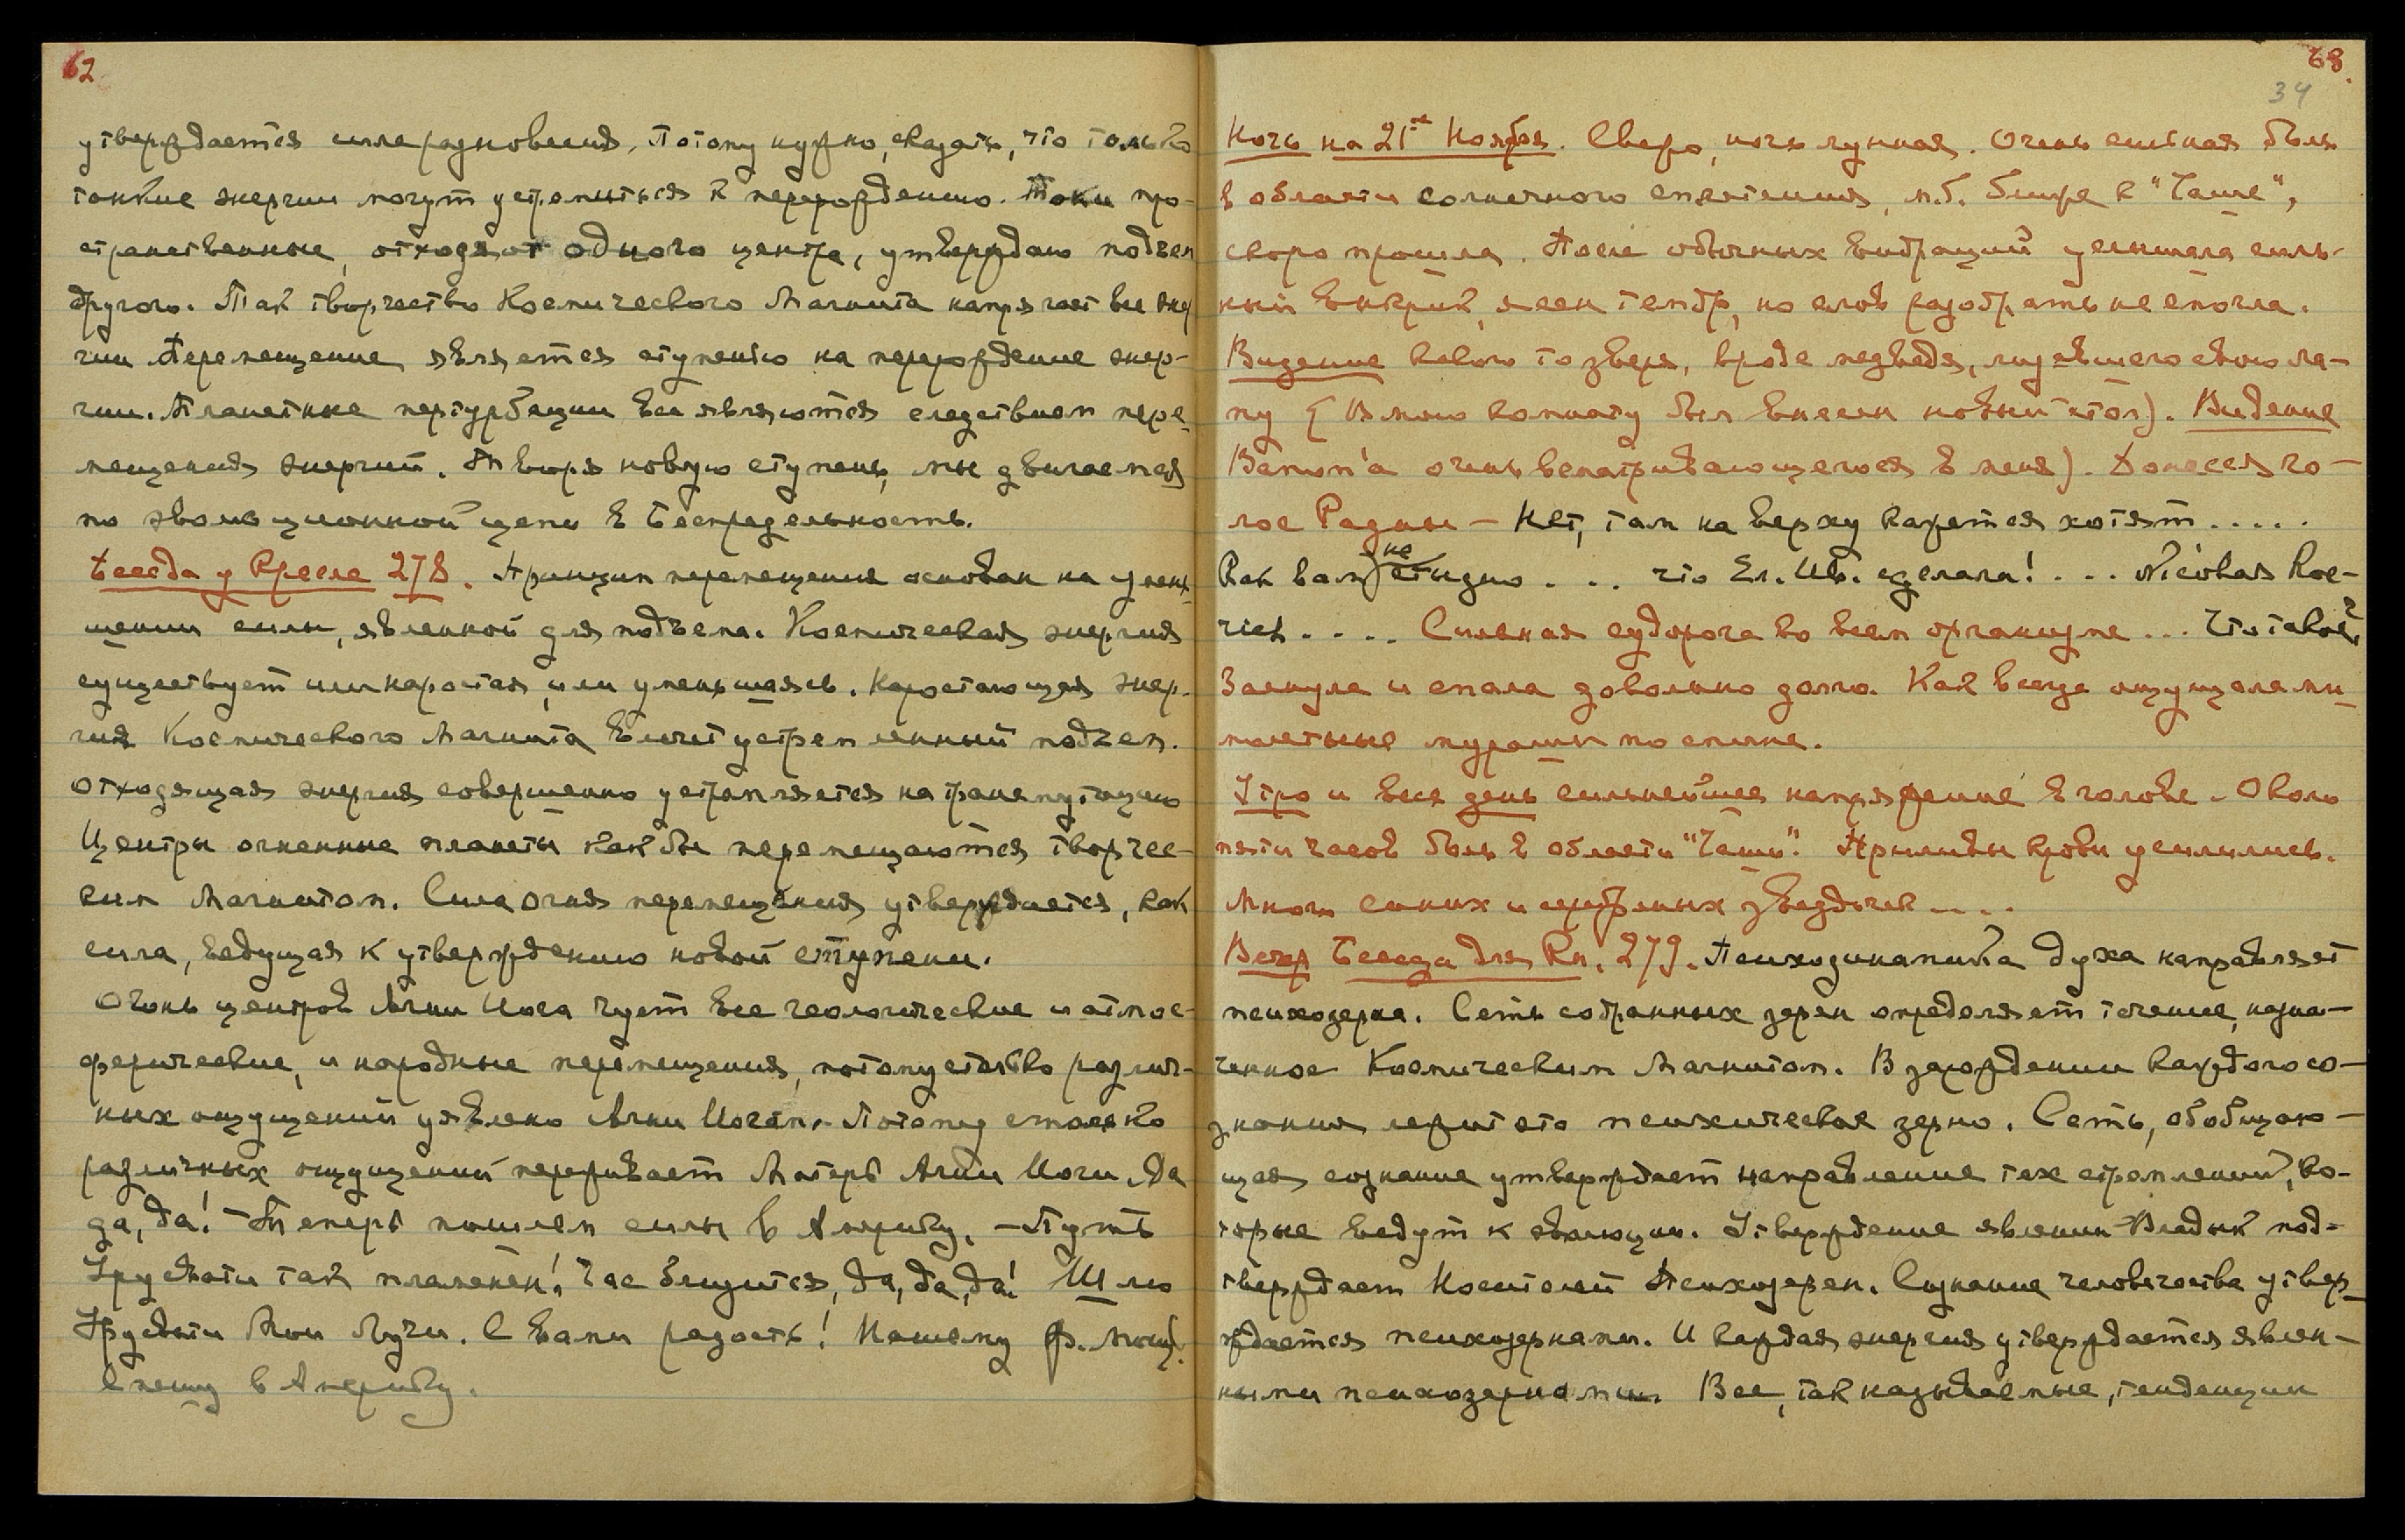 62
утверждается сила равновесия. Потому нужно, сказать, что только
тонкие энергии могут устремиться к перерождению. Токи про-
странственные, отходя от одного центра, утверждаю подъем
другого. Так творчество Космического Магнита напрягает все энер
гии Перемещение является ступенью на перерождение энер-
гии. Планетные пертурбации все являются следствием пере-
мещения энергий. Творя новую ступень, мы двигаемся
по эволюционной цепи в Беспредельность.
Беседа у Кресла 278. Принцип перемещения основан на умень-
шении силы, явленной для подъема. Космическая энергия
существует или наростая, или уменьшаясь. Наростающая энер-
гия Космического Магнита влечет устремленный подъем.
Отходящая энергия совершенно устремляется на трансмутацию
Центры огненные планеты как бы перемещаются творчес-
ким Магнитом. Сила огня перемещения утверждается, как
сила, ведущая к утверждению новой ступени.
Огонь центров Агни Иога чует все геологические и атмос-
ферические, и народные перемещения, потому столько различ-
ных ощущений уявлено Агни Иогам. Потому столько
различных ощущений переживает Матерь Агни Иоги. Да
да, да! – Теперь пошлем силы в Америку. – Путь
Урусвати так пламенен! Час близится, да, да, да! Шлю
Урусвати Мои Лучи. С вами радость! Нашему Ф. мощь.
Спешу в Америку.
68.
34
Ночь на 21ое Ноября. Сверо, ночь лунная. Очень сильная боль
в области солнечного сплетения, м.б. ближе к "Чаше",
скоро прошла. После обычных вибраций услышала силь-
ный выкрик, ясен тембр, но слов разобрать не смогла.
Видение какого то зверя, вроде медведя, лизавшего свою ла-
пу (В мою комнату был внесен новый стол). Видение
очень всматривающегося в меня). Донесся го-
лос Радны – Нет, там на верху кажется хотят.....
Как вам не стыдно . . . что Ел. Ив. сделала! . . . Nicolas Roe-
rich . . . . Сильная судорога во всем организме . . . Что такое?
Заснула и спала довольно долго. Как всегда ощущала ми-
молетные мурашки по спине.
Утро и весь день сильнейшее напряжение в голове. Около
пяти часов боль в области "Чаши". Приливы крови усилились.
Много синих и серебряных звездочек ....
Вечер Беседа для Кн. 279. Психодинамика духа направляет
психозерна. Сеть собранных зерен определяет течение, назна-
ченное Космическим Магнитом. В зарождении каждого со-
знания лежит это психическое зерно. Сеть, обобщаю-
щая сознание утверждает направление тех стремлений, ко-
торые ведут к эволюции. Утверждение явлении Владык под-
тверждает Носителей Психозерен. Сознание человечества утвер-
ждается психозернами. И каждая энергия утверждается явлен-
ными психозернами. Все, так называемые, тенденции